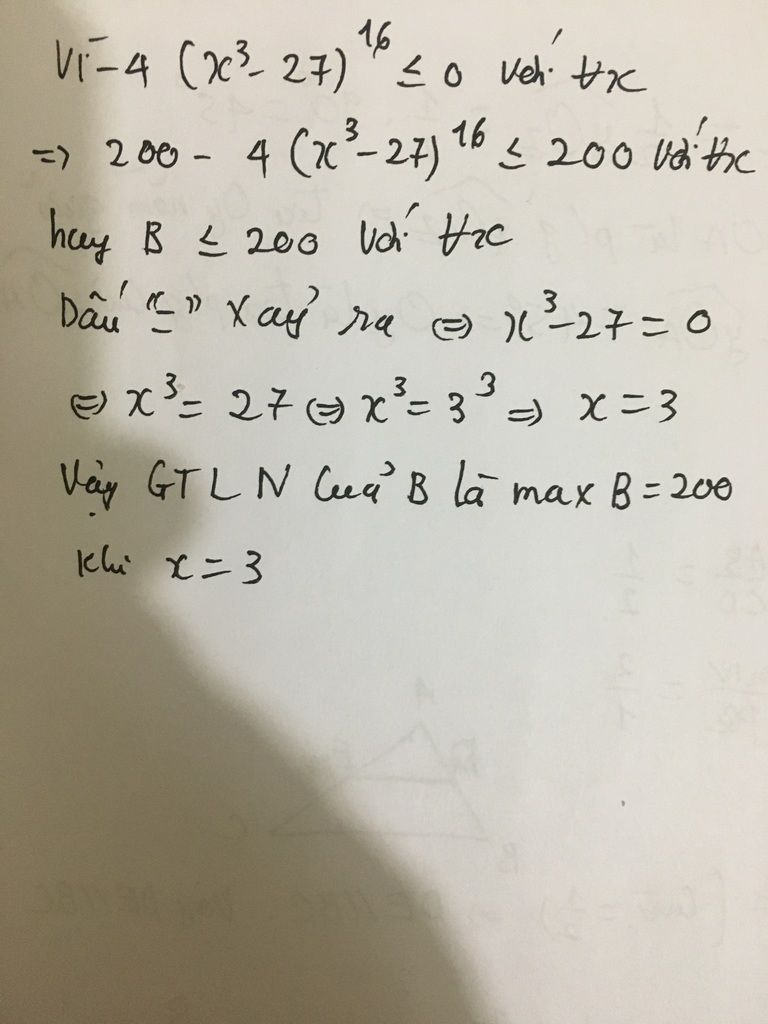 Vì -4 (x³ - 27)¹⁶ ≤ 0 với ∀x
=> 200 - 4 (x³ - 27)¹⁶ ≤ 200 với ∀x
hay B ≤ 200 với ∀x
Dấu "=" xảy ra <=> x³ - 27 = 0
<=> x³ = 27 <=> x³ = 3³ => x = 3
Vậy GTLN của B là max B = 200
khi x = 3